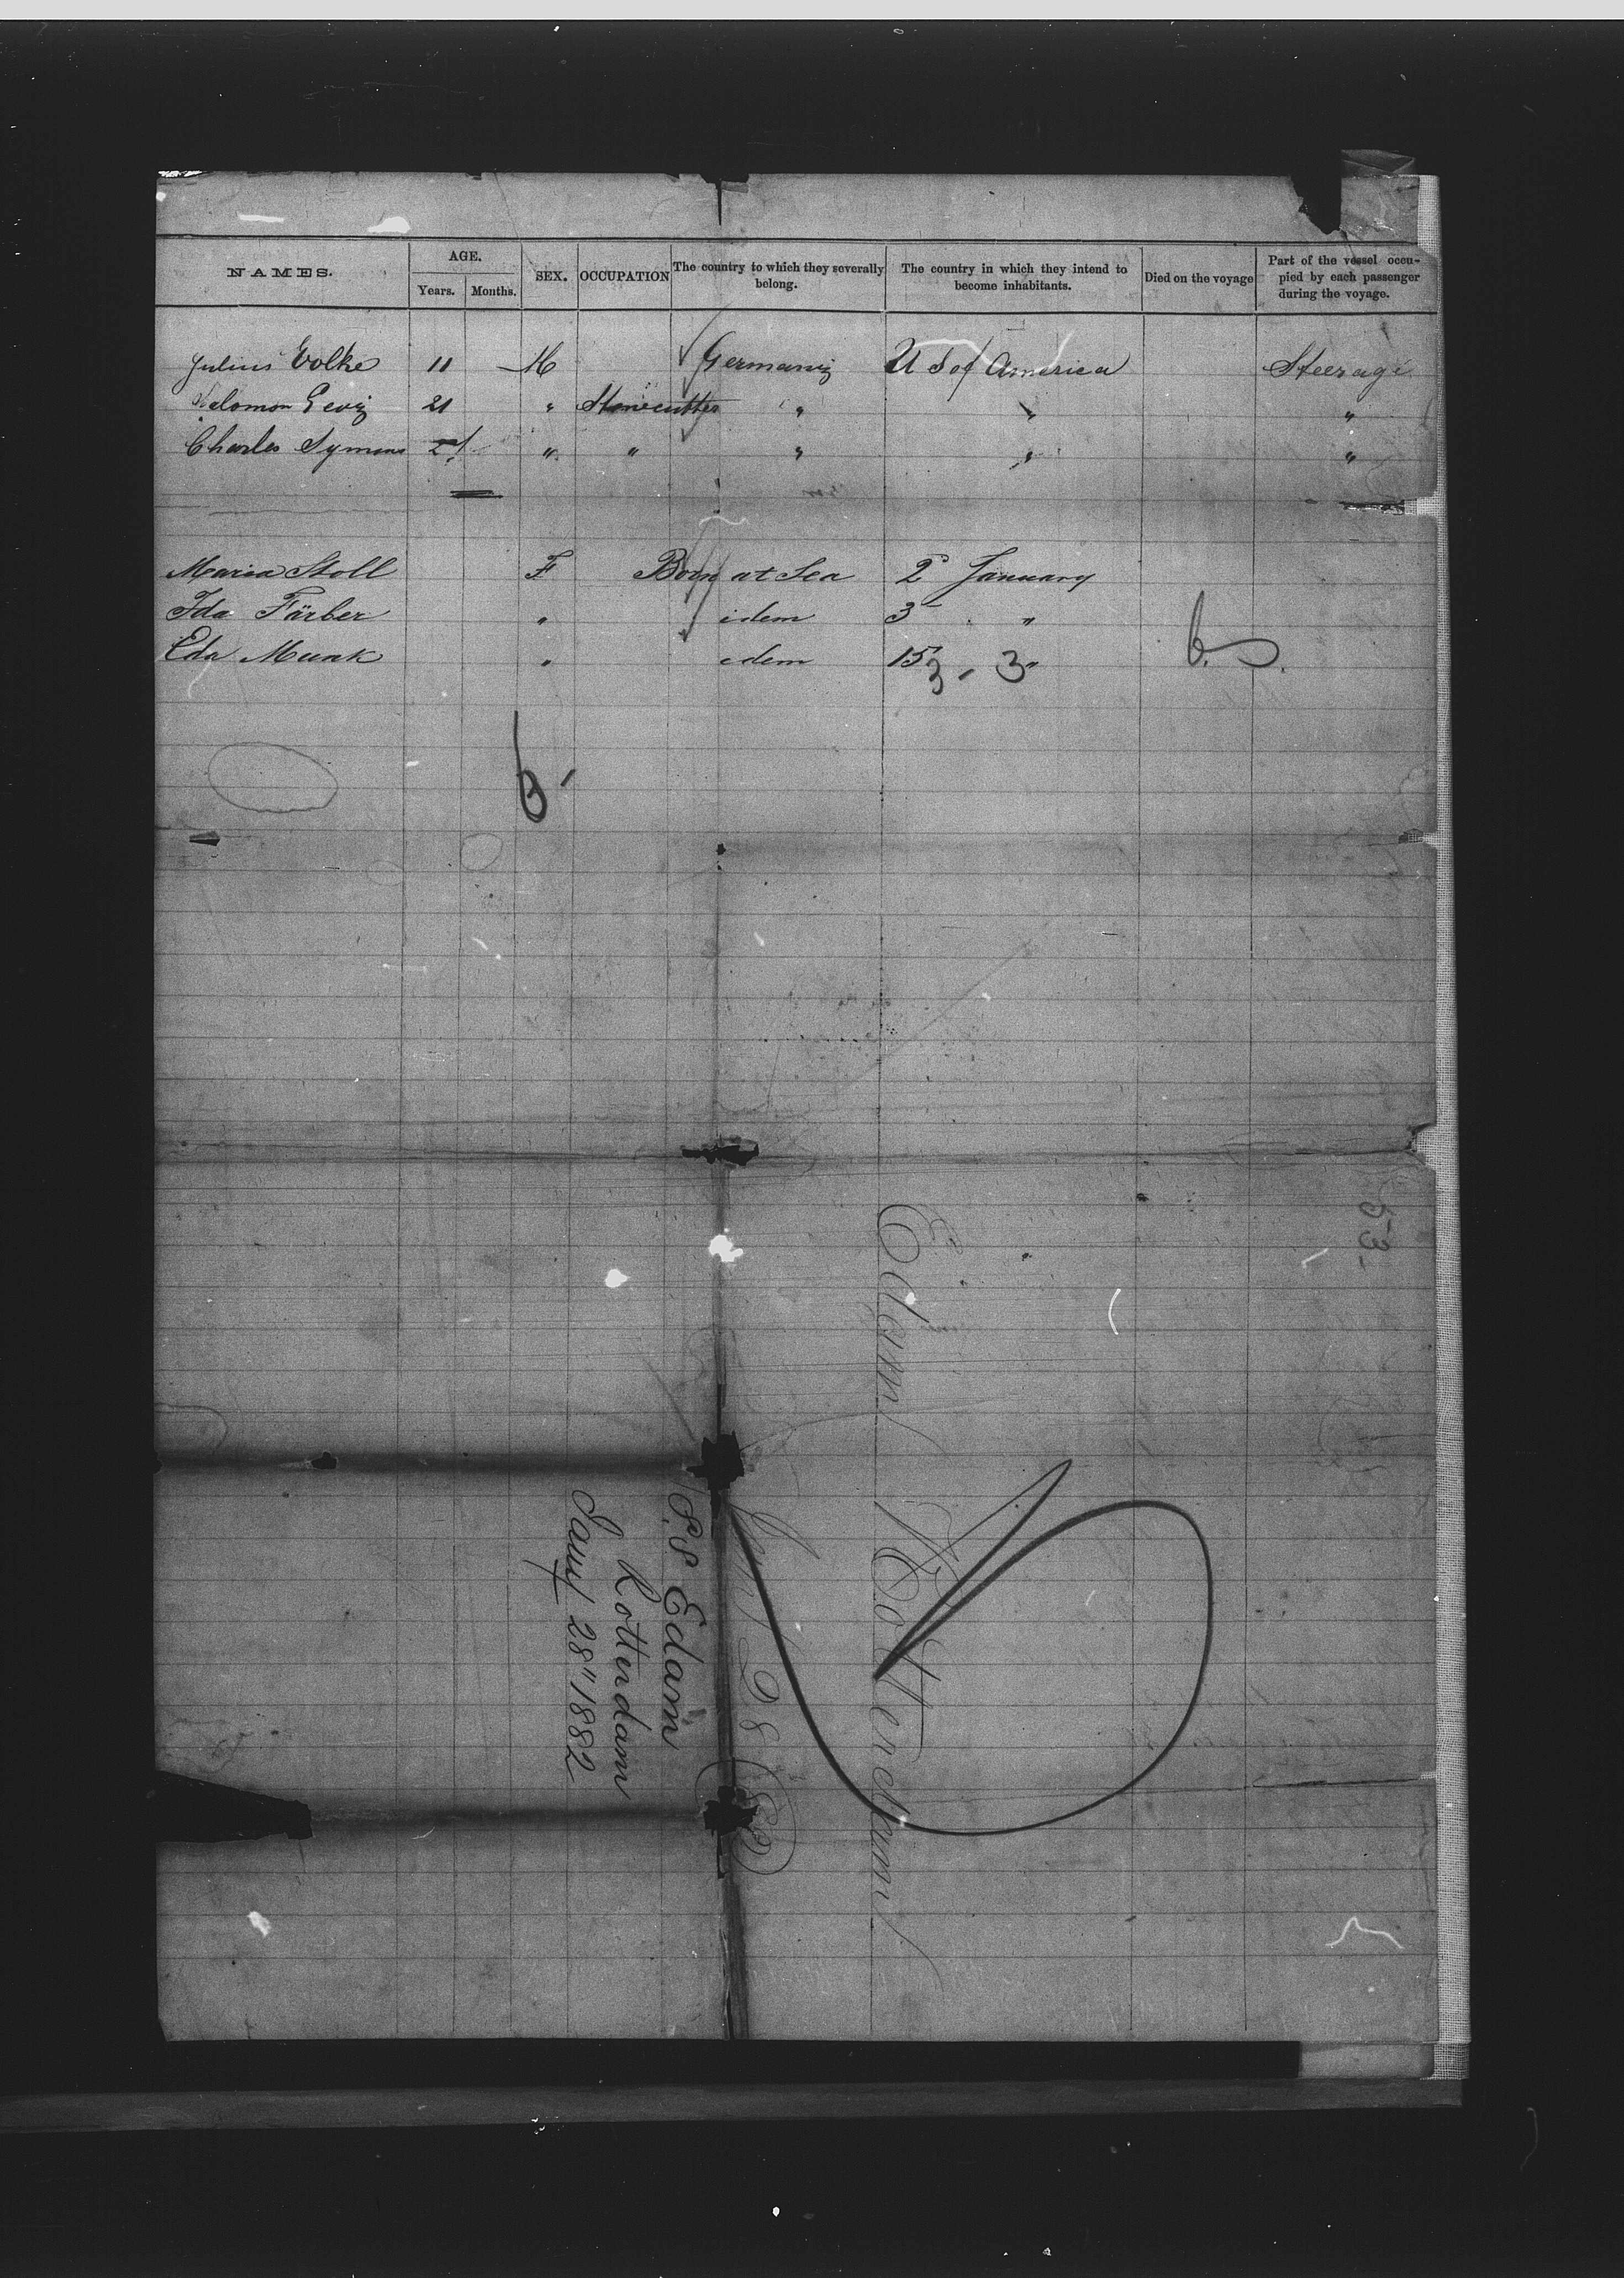 NAMES. AGE. Years. Months. SEX. OCCUPATION The country to which they severally belong. The country in which they intend to become inhabitants. Died on the voyage Part of the vessel occupied by each passenger during the voyage.
Julius Volke 11 M Germany U S of America Steerage
Salomon Levy 21 " Stonecutter " " "
Charles Symons 21 " " " " "
Maria Stoll F Born at Sea 2 January
Ida Färber " idem 3 "
Eda Munk " idem 15 "
3 - 3
6 -
53-
Edam Rotterdam
Jan 28 82
S.S Edam
Rotterdam
Jany 28" 1882